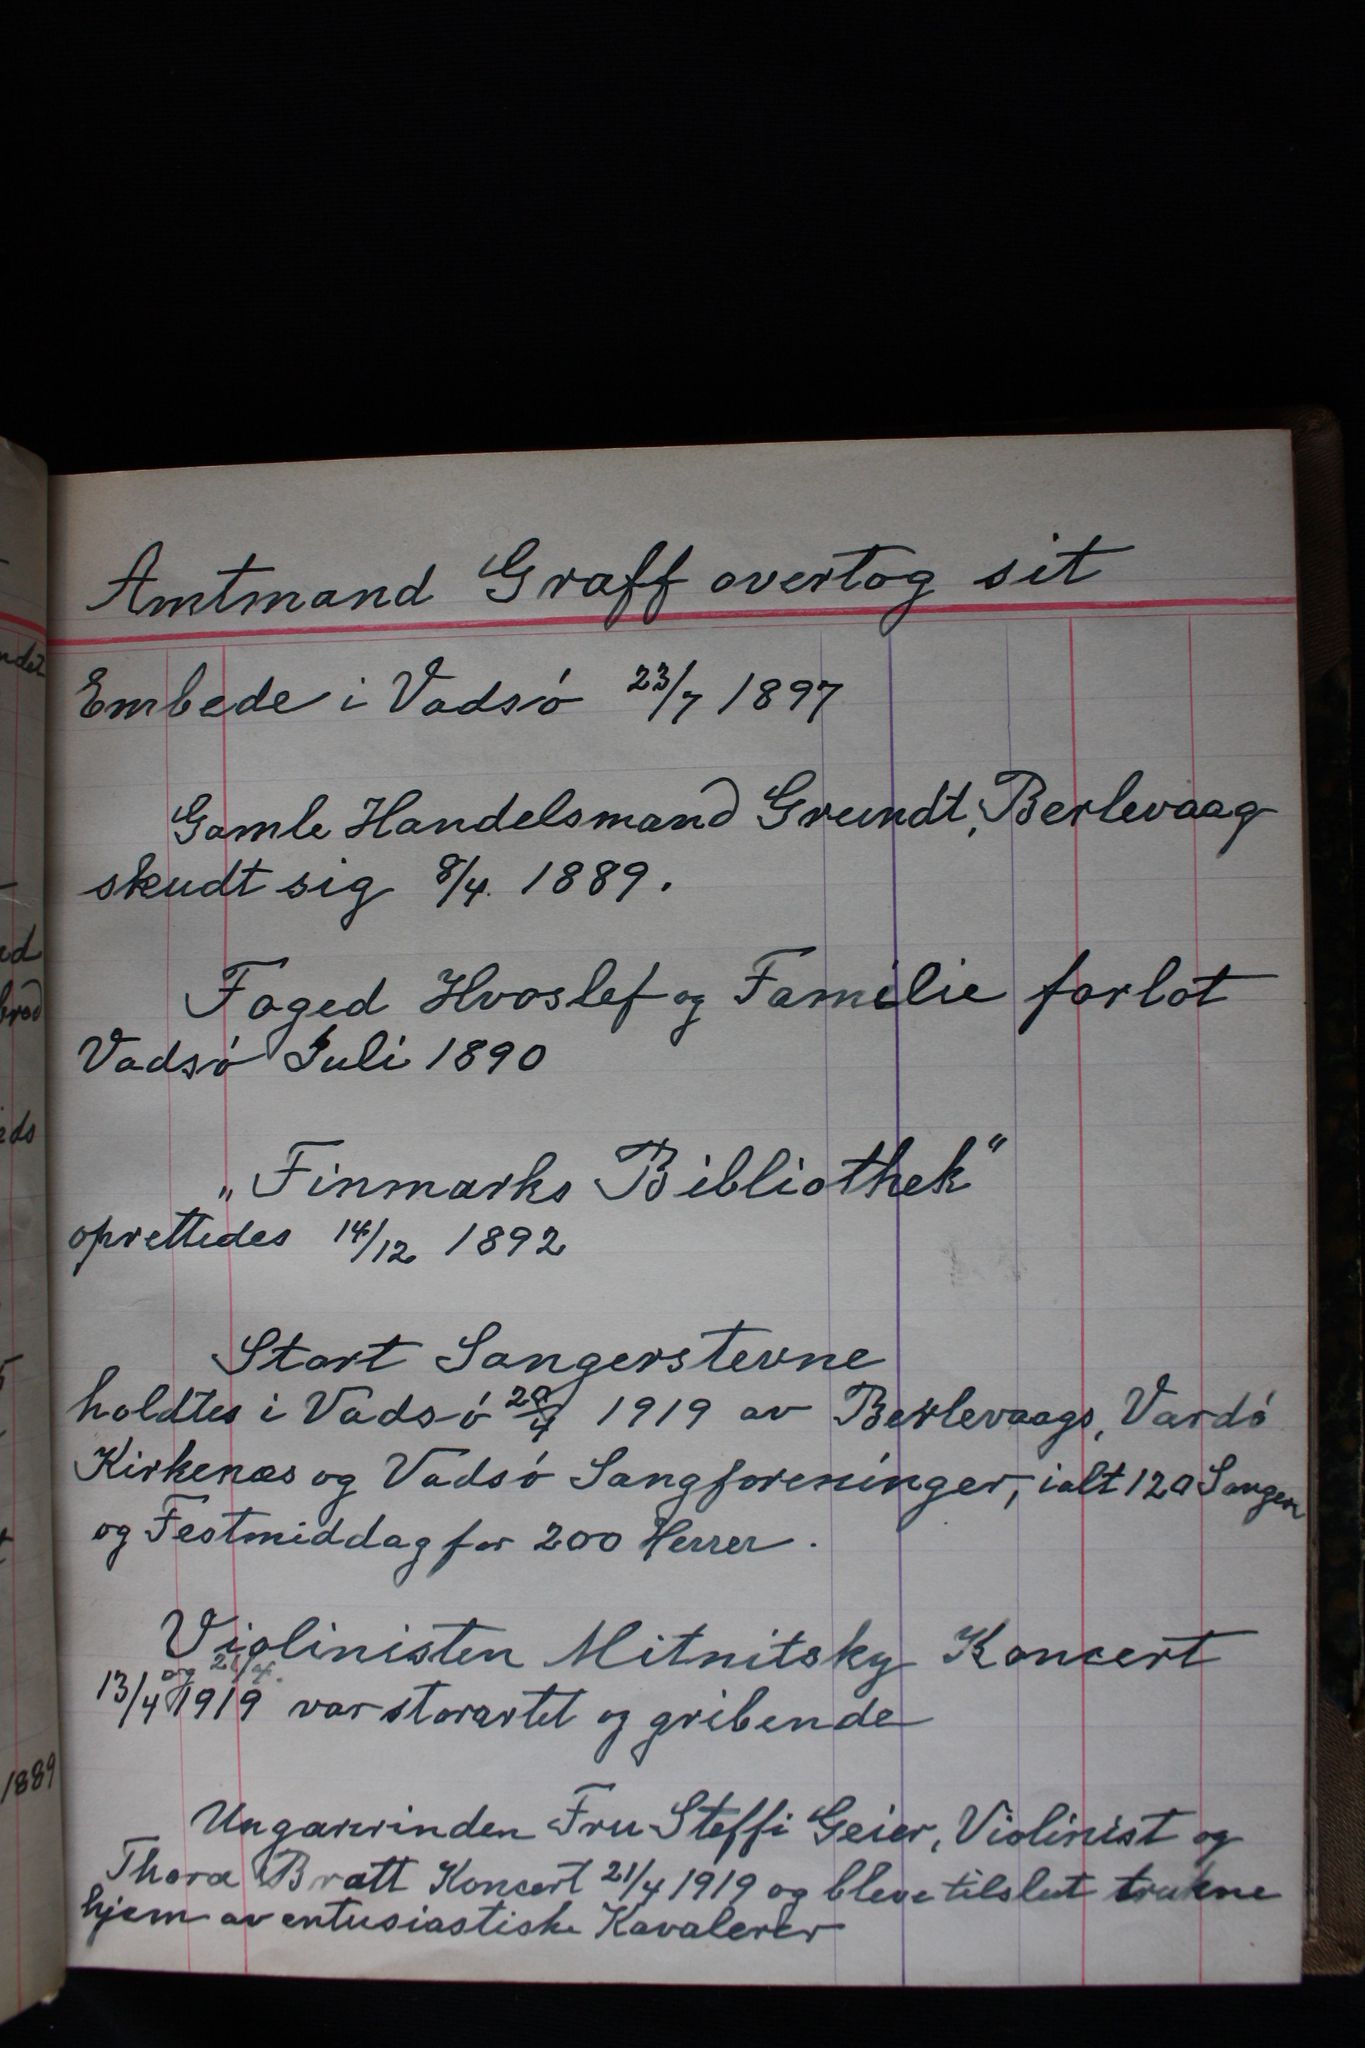 Amtmand Graff overtog sit
Embede i Vadsö 23/7 1897
Gamle Handelsmand Grundt, Berlevaag
skudt sig 8/4. 1889.
Foged Hvoslef og Familie forlot
Vadsö Juli 1890
„Finmarks Bibliothek"
oprettedes 14/12 1892
Stort Sangerstevne
holdtes i Vadsö 20/4 1919 av Berlevaags, Vardö
Kirkenæs og Vadsö Sangforeninger, ialt 120 Sangere
og Festmiddag for 200 Herrer.
Violinisten Mitnitsky Koncert
og 21/4.
13/4 1919 var storartet og gribende
Ungarerinden Fru Steffi Geier, Violinist og
Thora Bratt Koncert 21/4 1919 og bleve tilslut trukne
hjem av entusiastiske Kavalerer
ndet
ed
brød
eds
1889